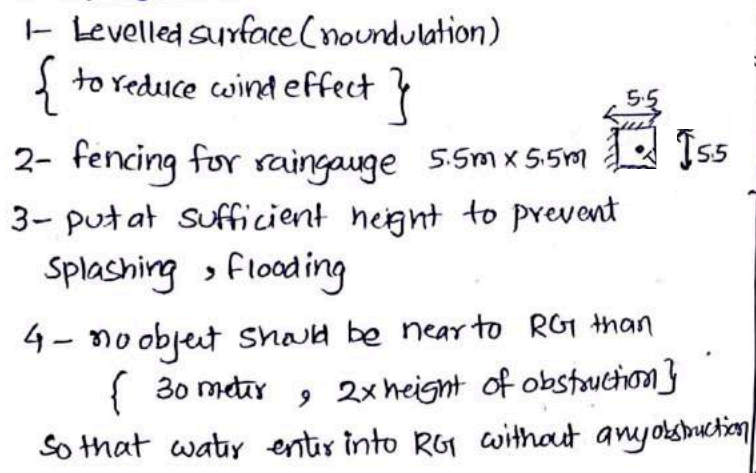 1- Levelled surface (noundulation)
{ to reduce wind effect }
5.5
2- fencing for raingauge 5.5m x 5.5m
5.5
3- put at sufficient height to prevent
splashing, flooding
4- no object should be near to RG than
{ 30 meter, 2x height of obstruction}
so that water enter into RG without any obstruction